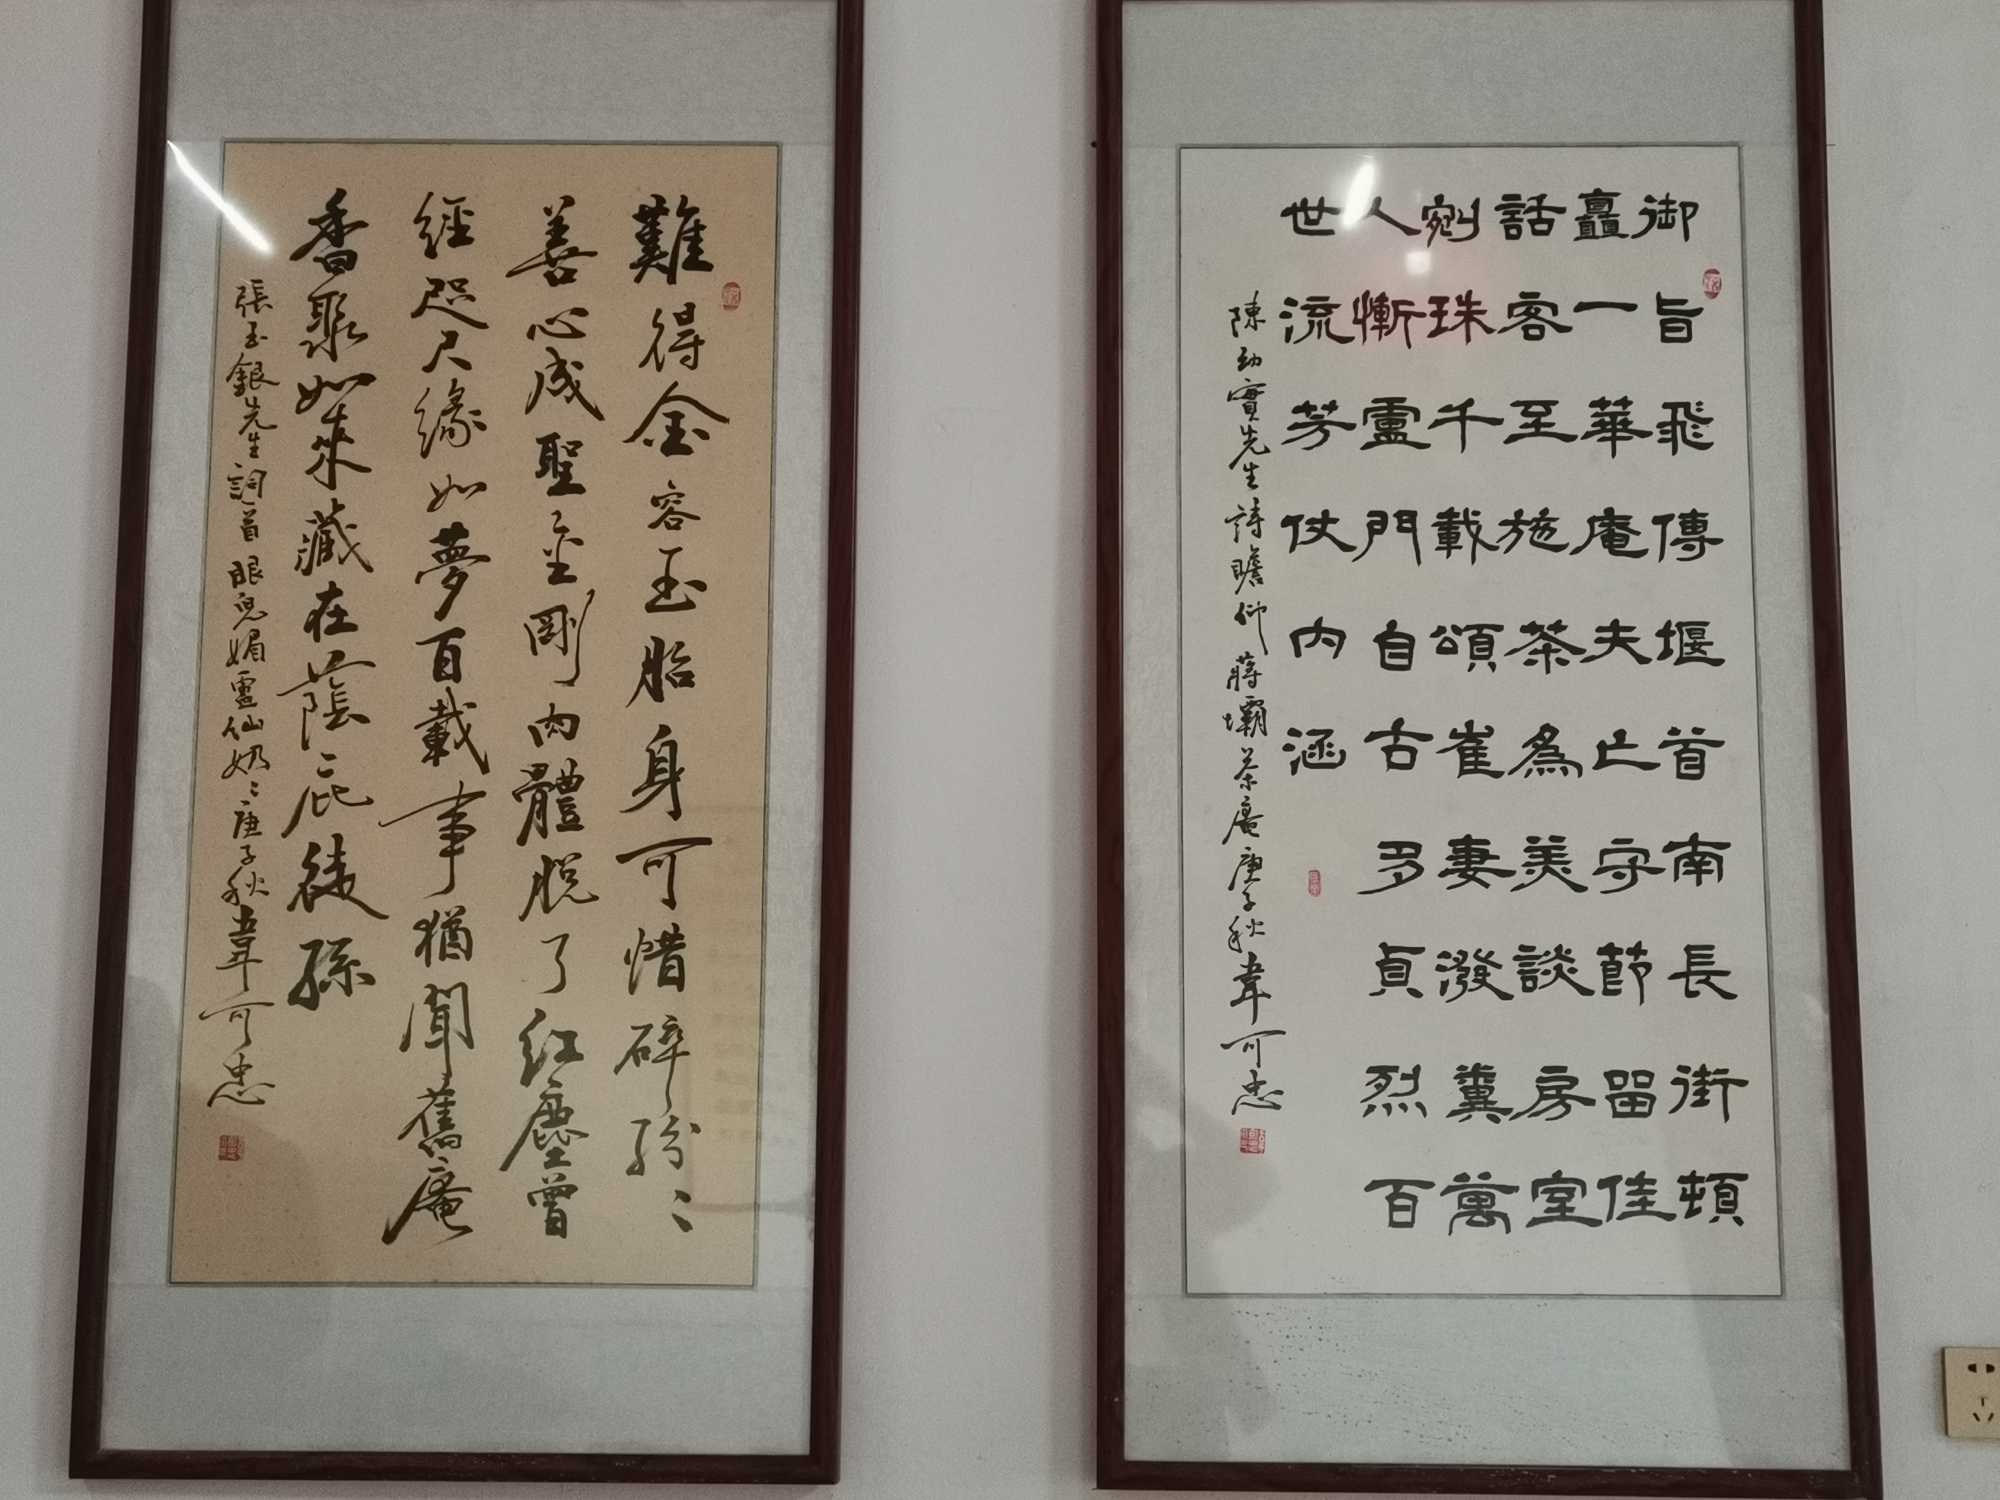 御旨飛傳堰首南長街頓
矗一華庵夫亡守節留佳
話客至施茶為美談房室
剜珠千載頌崔妻潑糞萬
人慚盧門自古多貞烈百
世流芳仗內涵
陳勁實先生詩瞻仰蔣壩茶庵庚子秋韋可忠
難得金容玉胎身可惜碎紛〻
善心成聖金剛肉體脫了紅塵曾
經咫尺緣如夢百載事猶聞舊庵
香聚如來藏在蔭庇徒孫
張玉銀先生詞一首眼兒媚盧仙奶〻庚子秋韋可忠